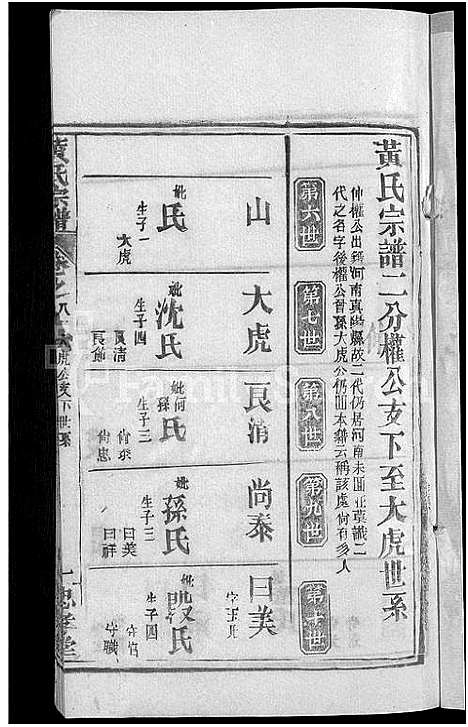 黃氏宗譜二分權公支下至大虎世系
仲權公出河南真陽縣故二代仍居河南未回莫識二
代之名字後權公曾孫大虎公仍回本籍云稱該處尚有多人
第六世
第七世
第八世
第九世
第十世
山
妣氏
生子一
大虎
大虎
妣沈氏
生子四
良清
良節
良清
妣何孫氏
生子三
尚泰
尚忠
尚泰
妣孫氏
生子三
曰美
曰祥
曰美
妣氏
生子四
守職
黃氏宗譜
卷之八
大虎公支下世系